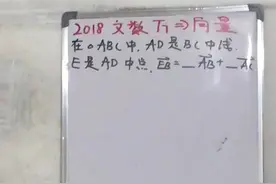 2018文数T7⇒向量
在△ABC中,AD是BC中线,
E是AD中点,EB=_AB+_AC